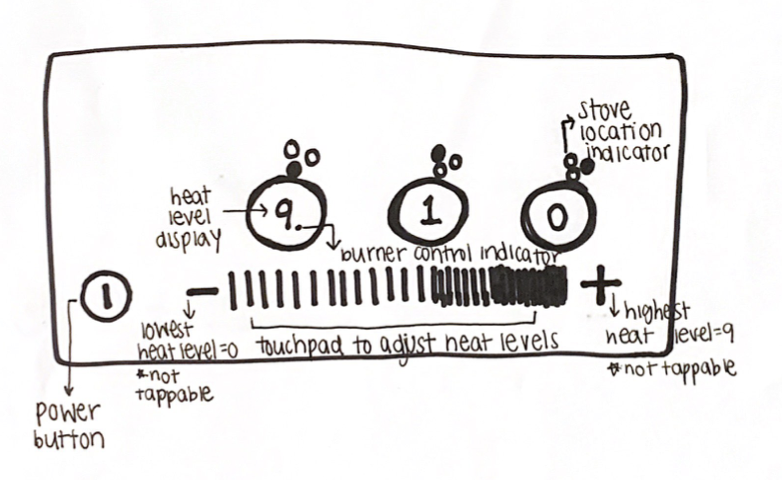 stove
location
indicator
heat
level
display
9.
1
0
burner control indicator
−
+
lowest
heat level=0
*not
tappable
touchpad to adjust heat levels
highest
heat level=9
*not tappable
power
button